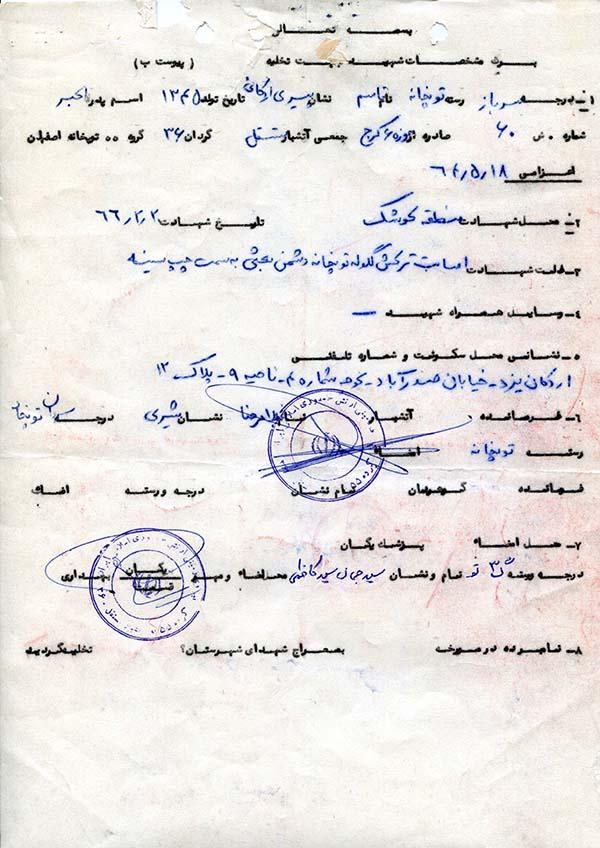 بسمه تعالی
برگ مشخصات شهید جهت تخلیه ( پیوست ب )
۱- درجه سرباز رسته توپخانه نام قاسم نشان اردکانی تاریخ تولد ۱۳۴۵ اسم پدر اکبر
شماره ش ۶۰ صادره از حوزه ۶ کرج جمعی آتشبار مستقل گردان ۳۶ گروه ۵۵ توپخانه اصفهان
اعزامی ۶۴/۵/۱۸
۲- محل شهادت منطقه کوشک تاریخ شهادت ۶۶/۲/۲
۳- علت شهادت اصابت ترکش گلوله توپخانه دشمن بعثی به سمت چپ سینه
۴- وسایل همراه شهید —
۵- نشانی محل سکونت و شماره تلفنی
اردکان یزد - خیابان صدرآباد - کوچه شماره ۴ - ناحیه ۹ - پلاک ۱۲
۶- فرمانده آتشبار نام غلامرضا نشان بشیری درجه ستوان توپخانه
رسته توپخانه امضاء
فرمانده گروهبان نام نشان درجه و رسته امضاء
۷- محل امضاء پزشک یگان
درجه رسته نام و نشان سید جلال سید کاظمی محل امضاء و مهر یگان قسمت بهداری
۸- نامبرده در مورخه بمعراج شهدای شهرستان؟ تخلیه گردید